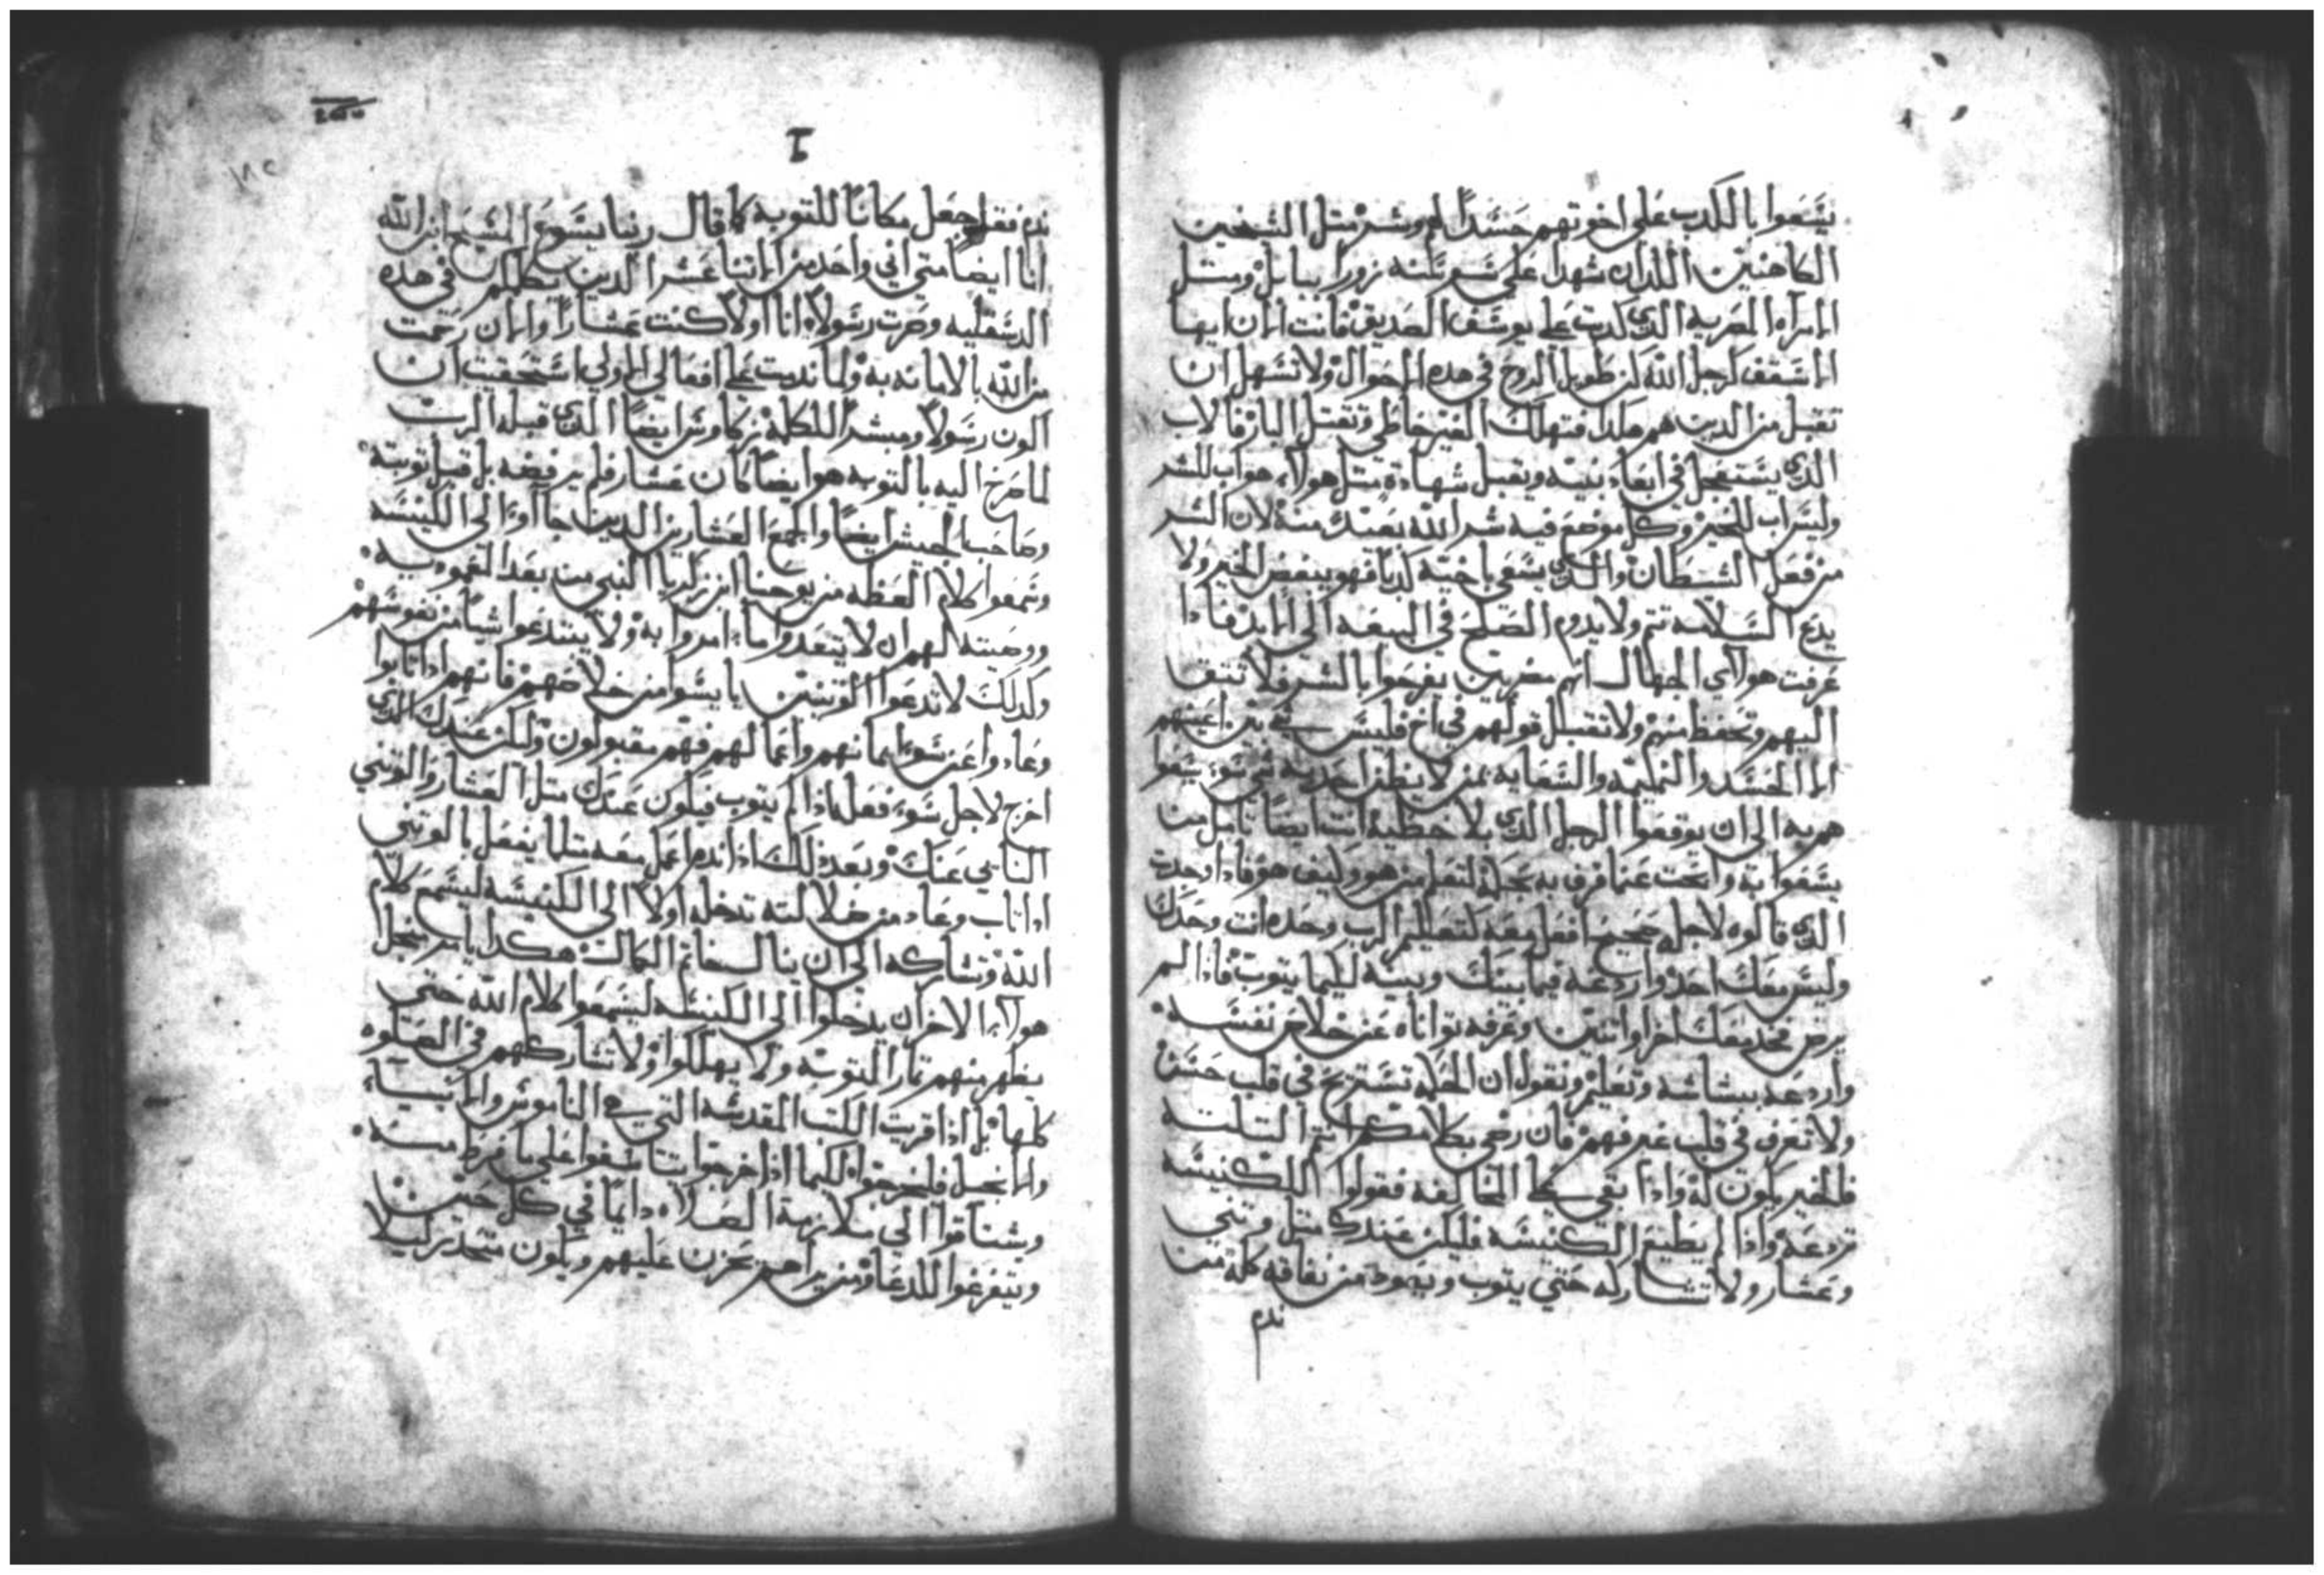 يسعوا بالكدب على اخوتهم حسدًا لهم وشر متل الشيخين
الكاهنين اللدان شهدا على سوسنه زورا ببابل ومتل
الامراه المصريه الدى كدبت على يوسف الصديق فانت الان ايها
الاسقف كرجل الله كن طويل الروح في هده الاحوال ولا تسهل ان
تقبل من الدين هم هكدا فتهلك الغير خاطي وتقتل البار فالاب
الدى يستعجل في ابعاد بنيه ويقبل شهادة متل هولاء هو اب للشر
وليس اب للخير وكل موضع فيه شر الله بعيد منه لان الشر
من فعل الشيطان والدى يسعى باخيه كدبا فهو يبغض الخير ولا
يدع السلامه تتم ولا يدوم الصلح في البيعه الى الابد فادا
عرفت هولاي الجهال انهم مضريين يفرحوا بالشر فلا تتق
اليهم وتحفظ منهم ولا تقبل قولهم في اخ فليس شى بين اعينهم
الا الحسد والنميمه والسعايه بمن لا يظن احد به شي سوء يسعوا
هم به الى ان يوقعوا الرجل الدى بلا خطية انت ايضا تامل من
يسعوا به وابحت عما قرف به بحكمة لتعلم من هو وكيف هو فادا وجدت
الدى قالوه لاجله صحيح افعل معه كتعليم الرب وحده انت وحدك
وليس معك احد واردعه فيما بينك وبينه لكيما يتوب فادا لم
يرض فخد معك اخر او اتنين وعرفه تواناه عن خلاص نفسه
واردعه ببشاشه وتعليم ونقول ان الحكمه تستريح في قلب حسن
ولا تعرف في قلب غير فهم فان رضي بكلامكم انتم التلته
فالخير يكون له وادا بقى على المخالفه فقولوا للكنيسه
تردعه وادا لم يطيع الكنيسه فليكن عندك متل وتني
وعشار ولا تشاركه حتي يتوب ويعود من نفاقه كله متى
ندم
ندم فقد اجعل مكانا للتوبه كما قال ربنا يسوع المسيح ابن الله
انا ايضا متي اني واحد من الاتنا عشر الدين يكلمكم في هده
الدسقليه وصرت رسولا انا اولا كنت عشارا والان رحمت
من الله بالامانه به ولما ندمت على افعالي الاولى استحقيت ان
اكون رسولا ومبشرا للكلمه زكاوس ايضا الدى قبله الرب
لما صرخ اليه بالتوبه هو ايضا كان عشار فلم يرفضه بل قبل توبته
وصاحب الجيش ايضا والجمع العشارين الدين جااوا الى الكنيسه
وسمعوا كلام العظه من يوحنا ابن زكريا النبي من بعد المعموديه
ووصيته لهم ان لا يتعدوا ما امروا به ولا يبتدعوا شيا من نفوسهم
وكدلك لا تدعوا الوتنيين يايسوا من خلاصهم فانهم ادا تابوا
وعادوا عن سوء ايمانهم واعمالهم فهم مقبولون وليكن عندك الدى
اخرج لاجل سوء فعل ماذا لم يتوب فيكون عندك متل العشار والوتني
النابي عنك وبعد ذلك اذا ندم اعمل معه متلما يفعل بالوتني
ادا تاب وعاد من ضلالته تدخله اولا الى الكنيسه ليسمع كلام
الله وتشاركه الى ان ينال خاتم الكمال هكدا يا من اجل
هولاء الاخر ان يدخلوا الى الكنيسه ليسمعوا كلام الله حتى
يظهر منهم تمار التوبه ولا يهلكوا ولا تشاركهم في الصلوه
كلها بل ادا قريت الكتب المقدسه التي هى الناموس والانبياء
والانجيل فليخرجوا لكيما اذا خرجوا يتاسفوا على ما فرط منهم
ويشتاقوا الي ملازمة الصلاه دايما في كل حين
ويتفرغوا للدعاء ومن يراهم يحزن عليهم ويكون متحذر كيلا